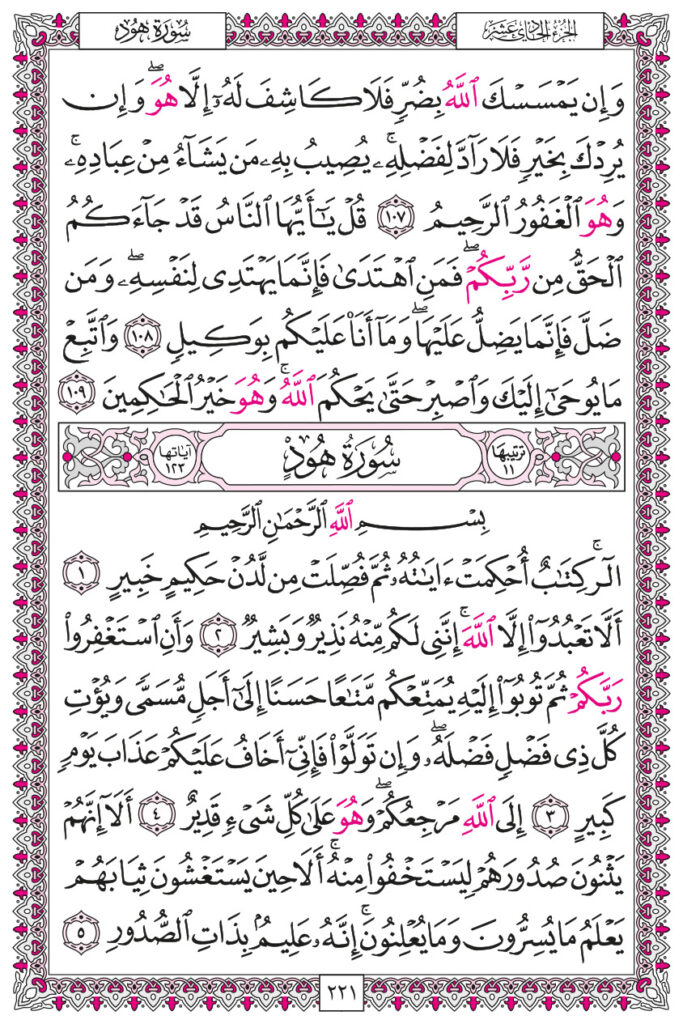 الجزء الحادي عشر
سُورَةُ هُودٍ
وَإِن يَمۡسَسۡكَ ٱللَّهُ بِضُرّٖ فَلَا كَاشِفَ لَهُۥٓ إِلَّا هُوَۖ وَإِن
يُرِدۡكَ بِخَيۡرٖ فَلَا رَآدَّ لِفَضۡلِهِۦۚ يُصِيبُ بِهِۦ مَن يَشَآءُ مِنۡ عِبَادِهِۦۚ
وَهُوَ ٱلۡغَفُورُ ٱلرَّحِيمُ ١٠٧ قُلۡ يَٰٓأَيُّهَا ٱلنَّاسُ قَدۡ جَآءَكُمُ
ٱلۡحَقُّ مِن رَّبِّكُمۡۖ فَمَنِ ٱهۡتَدَىٰ فَإِنَّمَا يَهۡتَدِي لِنَفۡسِهِۦۖ وَمَن
ضَلَّ فَإِنَّمَا يَضِلُّ عَلَيۡهَاۖ وَمَآ أَنَا۠ عَلَيۡكُم بِوَكِيلٖ ١٠٨ وَٱتَّبِعۡ
مَا يُوحَىٰٓ إِلَيۡكَ وَٱصۡبِرۡ حَتَّىٰ يَحۡكُمَ ٱللَّهُۚ وَهُوَ خَيۡرُ ٱلۡحَٰكِمِينَ ١٠٩
ترتيبها ١١ سُورَةُ هُودٍ آياتها ١٢٣
بِسۡمِ ٱللَّهِ ٱلرَّحۡمَٰنِ ٱلرَّحِيمِ
الٓرۚ كِتَٰبٌ أُحۡكِمَتۡ ءَايَٰتُهُۥ ثُمَّ فُصِّلَتۡ مِن لَّدُنۡ حَكِيمٍ خَبِيرٍ ١
أَلَّا تَعۡبُدُوٓاْ إِلَّا ٱللَّهَۚ إِنَّنِي لَكُم مِّنۡهُ نَذِيرٞ وَبَشِيرٞ ٢ وَأَنِ ٱسۡتَغۡفِرُواْ
رَبَّكُمۡ ثُمَّ تُوبُوٓاْ إِلَيۡهِ يُمَتِّعۡكُم مَّتَٰعًا حَسَنًا إِلَىٰٓ أَجَلٖ مُّسَمّٗى وَيُؤۡتِ
كُلَّ ذِي فَضۡلٖ فَضۡلَهُۥۖ وَإِن تَوَلَّوۡاْ فَإِنِّيٓ أَخَافُ عَلَيۡكُمۡ عَذَابَ يَوۡمٖ
كَبِيرٍ ٣ إِلَى ٱللَّهِ مَرۡجِعُكُمۡۖ وَهُوَ عَلَىٰ كُلِّ شَيۡءٖ قَدِيرٌ ٤ أَلَآ إِنَّهُمۡ
يَثۡنُونَ صُدُورَهُمۡ لِيَسۡتَخۡفُواْ مِنۡهُۚ أَلَا حِينَ يَسۡتَغۡشُونَ ثِيَابَهُمۡ
يَعۡلَمُ مَا يُسِرُّونَ وَمَا يُعۡلِنُونَۚ إِنَّهُۥ عَلِيمُۢ بِذَاتِ ٱلصُّدُورِ ٥
٢٢١